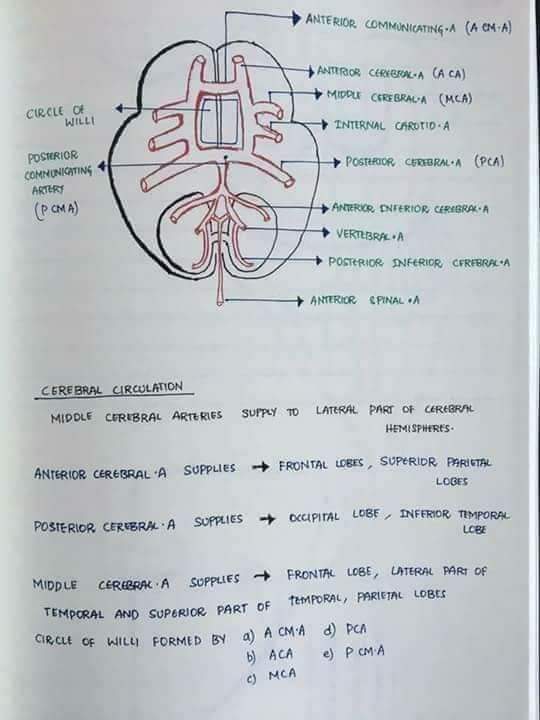 ANTERIOR COMMUNICATING.A (A CM.A)
ANTERIOR CEREBRAL.A (A CA)
MIDDLE CEREBRAL.A (MCA)
CIRCLE OF
WILLI
INTERNAL CAROTID.A
POSTERIOR
COMMUNICATING
ARTERY
(P CMA)
POSTERIOR CEREBRAL.A (PCA)
ANTERIOR INFERIOR CEREBRAL.A
VERTEBRAL.A
POSTERIOR INFERIOR CEREBRAL.A
ANTERIOR SPINAL.A
CEREBRAL CIRCULATION
MIDDLE CEREBRAL ARTERIES SUPPLY TO LATERAL PART OF CEREBRAL
HEMISPHERES.
ANTERIOR CEREBRAL.A SUPPLIES → FRONTAL LOBES, SUPERIOR PARIETAL
LOBES
POSTERIOR CEREBRAL.A SUPPLIES → OCCIPITAL LOBE, INFERIOR TEMPORAL
LOBE
MIDDLE CEREBRAL.A SUPPLIES → FRONTAL LOBE, LATERAL PART OF
TEMPORAL AND SUPERIOR PART OF TEMPORAL, PARIETAL LOBES
CIRCLE OF WILLI FORMED BY a) A CM.A d) PCA
b) ACA e) P CM.A
c) MCA